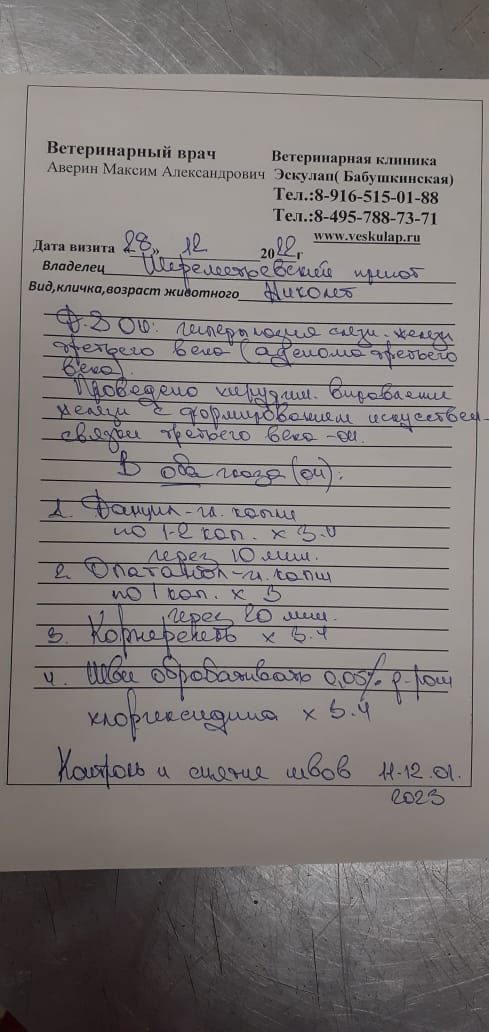 Ветеринарный врач
Аверин Максим Александрович
Ветеринарная клиника
Эскулап( Бабушкинская)
Тел.:8-916-515-01-88
Тел.:8-495-788-73-71
www.veskulap.ru
Дата визита 28„ 12 2022г
Владелец Шереметьевский приют
Вид,кличка,возраст животного Николет
OU: гиперплазия слезн. железы
третьего века (аденома третьего
века).
Проведено хирургич. вправление
железы с формированием искусствен-
связки третьего века -OU.
В оба глаза (OU):
1. Данцил-гл. капли
по 1-2 кап. х 3
через 10 мин.
2. Опатанол-гл. капли
по 1 кап. х 3
через 20 мин.
3. Корнерегель х 3-4
4. Швы обрабатывать 0,05% р-ром
хлоргексидина х 3-4
Контроль и снятие швов 11-12.01.
2023